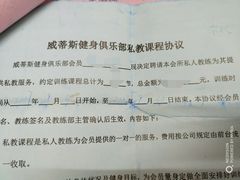 威蒂斯健身俱乐部私教课程协议
威蒂斯健身俱乐部会员 现决定聘请本会所私人教练为其提
供私教服务，约定训练课程总计为 节，总金额为 元，训练时
间从 年 月 日开始，至 年 月 日结束，本协议经会员
名、教练签名及教练部主管确认后生效，内容如下：
私教课程是私人教练为会员提供的一对一的服务，费用按公司规定由前台统
一收取。
为会员量身定做全面安排好训